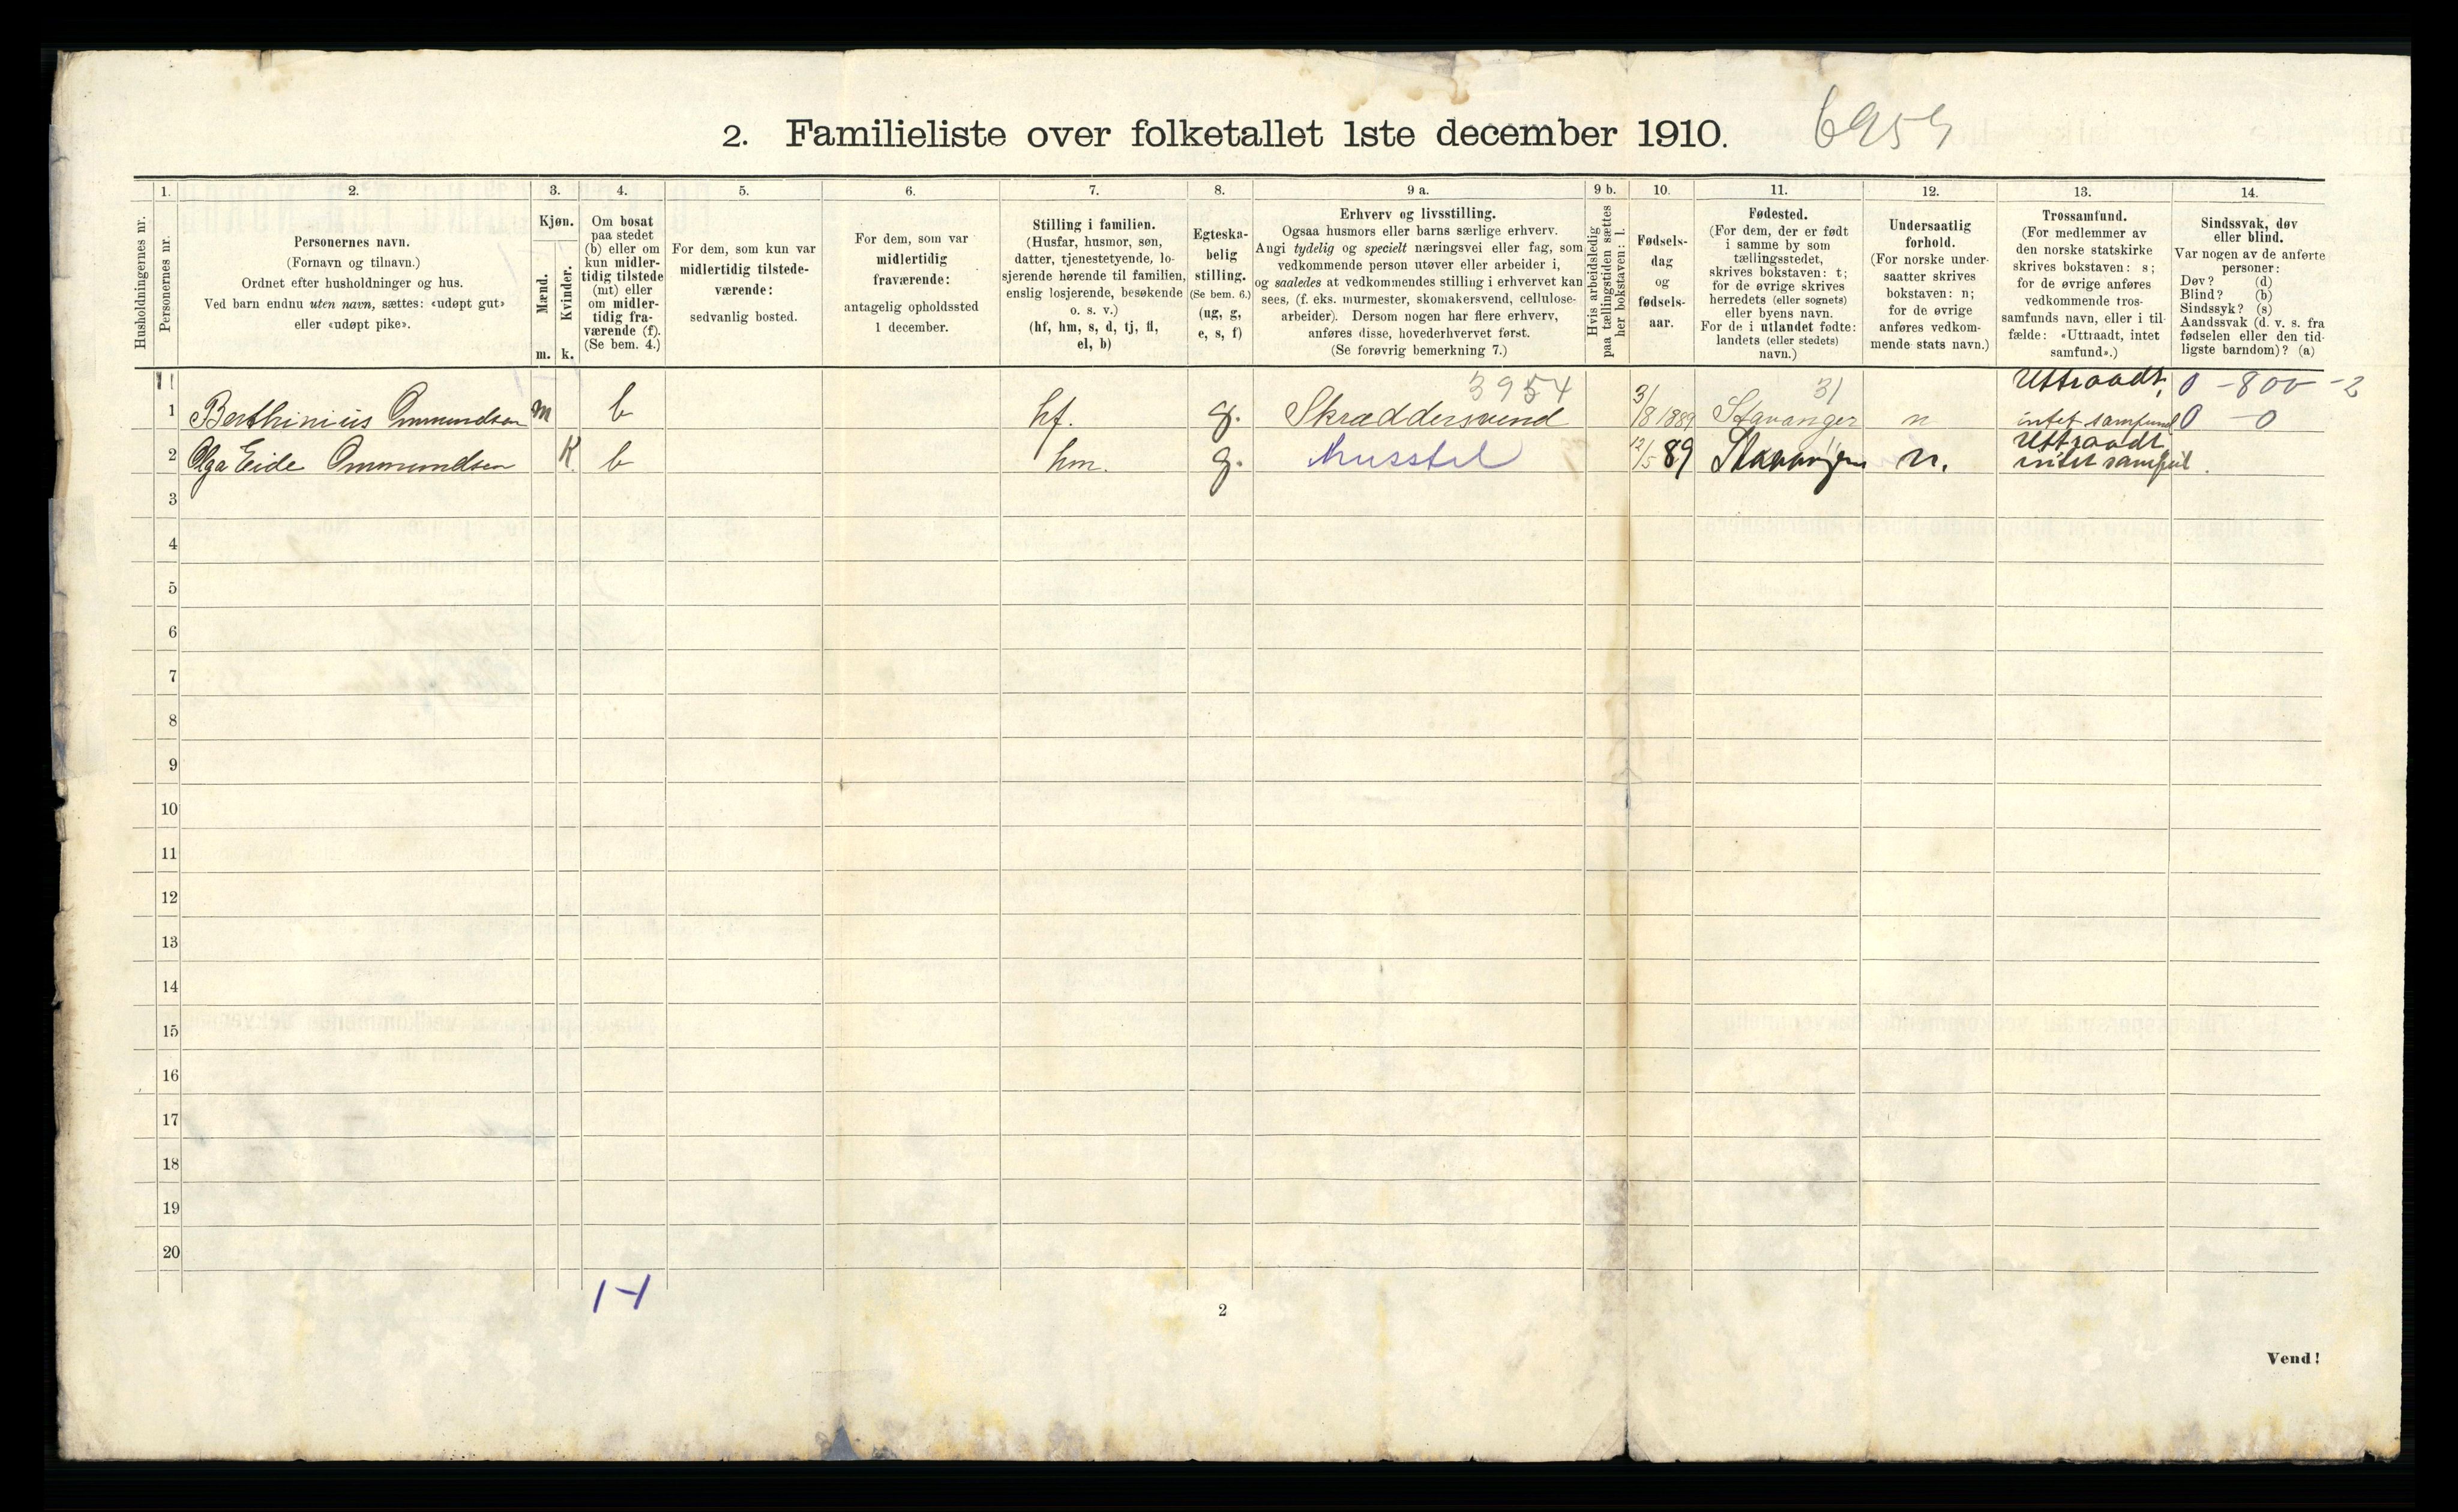 2. Familieliste over folketallet 1ste december 1910.
6959
1. 2. 3. 4. 5. 6. 7. 8. 9 a. 9 b. 10. 11. 12. 13. 14.
Husholdningernes nr.
Personernes nr.
Personernes navn.
(Fornavn og tilnavn.)
Ordnet efter husholdninger og hus.
Ved barn endnu uten navn, sættes: «udøpt gut»
eller «udøpt pike».
Kjøn.
Mænd.
Kvinder.
m. k.
Om bosat
paa stedet
(b) eller om
kun midler-
tidig tilstede
(mt) eller
om midler-
tidig fra-
værende (f).
(Se bem. 4.)
For dem, som kun var
midlertidig tilstede-
værende:
sedvanlig bosted.
For dem, som var
midlertidig
fraværende:
antagelig opholdssted
1 december.
Stilling i familien.
(Husfar, husmor, søn,
datter, tjenestetyende, lo-
sjerende hørende til familien,
enslig losjerende, besøkende
o. s. v.)
(hf, hm, s, d, tj, fl,
el, b)
Egteska-
belig
stilling.
(Se bem. 6.)
(ug, g,
e, s, f)
Erhverv og livsstilling.
Ogsaa husmors eller barns særlige erhverv.
Angi tydelig og specielt næringsvei eller fag, som
vedkommende person utøver eller arbeider i,
og saaledes at vedkommendes stilling i erhvervet kan
sees, (f. eks. murmester, skomakersvend, cellulose-
arbeider). Dersom nogen har flere erhverv,
anføres disse, hovederhvervet først.
(Se forøvrig bemerkning 7.)
Hvis arbeidsledig
paa tællingstiden sættes
her bokstaven: l.
Fødsels-
dag
og
fødsels-
aar.
Fødested.
(For dem, der er født
i samme by som
tællingsstedet,
skrives bokstaven: t;
for de øvrige skrives
herredets (eller sognets)
eller byens navn.
For de i utlandet fødte:
landets (eller stedets)
navn.)
Undersaatlig
forhold.
(For norske under-
saatter skrives
bokstaven: n;
for de øvrige
anføres vedkom-
mende stats navn.)
Trossamfund.
(For medlemmer av
den norske statskirke
skrives bokstaven: s;
for de øvrige anføres
vedkommende tros-
samfunds navn, eller i til-
fælde: «Uttraadt, intet
samfund».)
Sindssvak, døv
eller blind.
Var nogen av de anførte
personer:
Døv? (d)
Blind? (b)
Sindssyk? (s)
Aandssvak (d. v. s. fra
fødselen eller den tid-
ligste barndom)? (a)
3954 31 Uttraadt, 0 - 800 - 2
1 Berthinius Ommundsen m b hf. g. Skræddersvend 3/8 1889 Stavanger n intet samfund 0 - 0
Uttraadt
2 Olga Eide Ommundsen K b hm. g. Husstel 12/5 89 Stavanger n. intet samfund.
3
4
5
6
7
8
9
10
11
12
13
14
15
16
17
18
19
20
1-1
2
Vend!